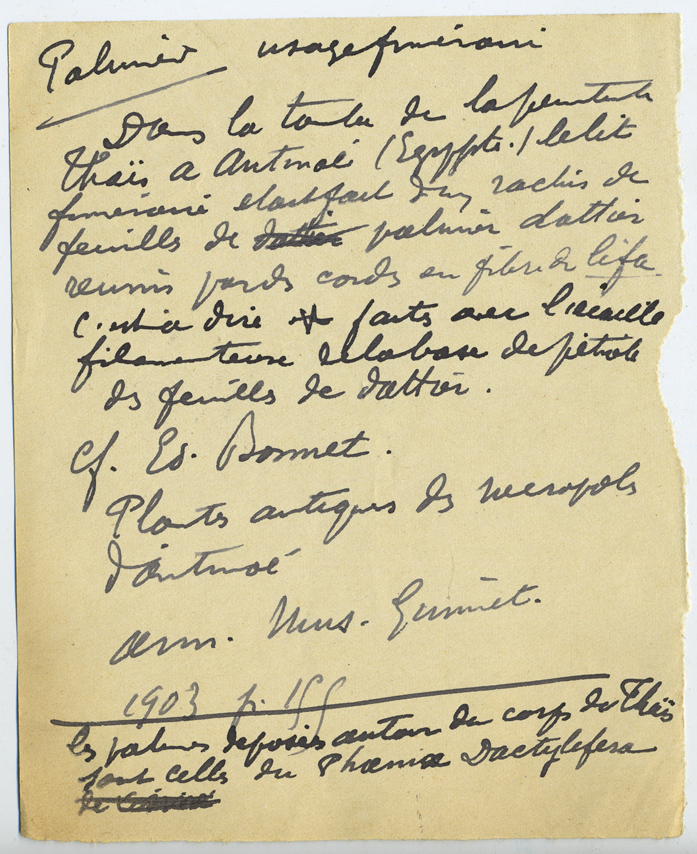 Palmier usage funéraire
Dans la tombe de la pénitente
Thaïs a Antinoé (Egypte.) le lit
funéraire etait fait d'un rachis de
feuilles de dattier palmier dattier
reunis par des cordes en fibre de lifa
c. est a dire faites avec l'écaille
filamenteuse de la base de petiole
des feuilles de dattier.
Cf. Ed. Bonnet.
Plantes antiques des necropoles
d'Antinoé
ann. Mus. Guimet.
1903 p. 155
les palmes déposées autour du corps de Thaïs
sont celles du Phoenix Dactylifera
de